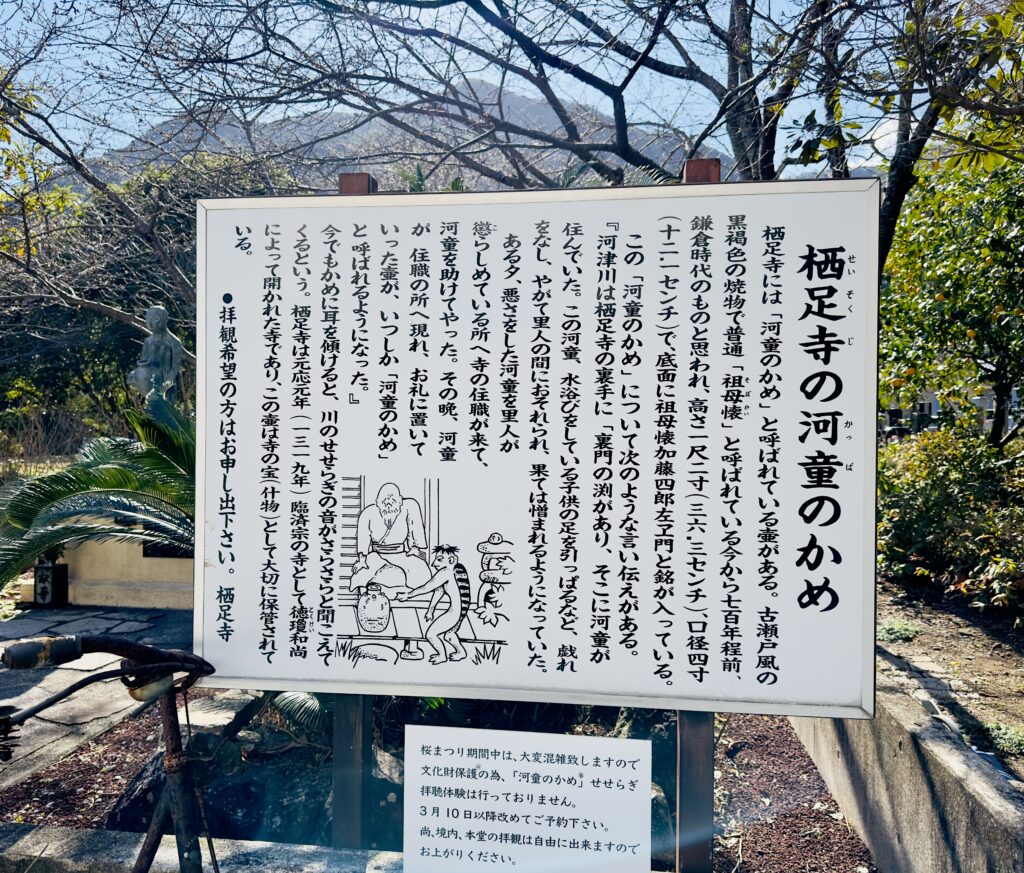 栖足寺の河童のかめ
せいそくじ
かっぱ
栖足寺には「河童のかめ」と呼ばれている壷がある。古瀬戸風の
黒褐色の焼物で普通「祖母懐」と呼ばれている今から七百年程前、
そぼかい
鎌倉時代のものと思われ、高さ一尺二寸(三六・三センチ)、口径四寸
(十二・一センチ)で、底面に祖母懐加藤四郎左ヱ門と銘が入っている。
この「河童のかめ」について次のような言い伝えがある。
『河津川は栖足寺の裏手に「裏門の渕があり、そこに河童が
住んでいた。この河童、水浴びをしている子供の足を引っぱるなど、戯れ
をなし、やがて里人の間におそれられ、果ては憎まれるようになっていた。
ある夕、悪さをした河童を里人が
懲らしめている所へ寺の住職が来て、
こ
河童を助けてやった。その晩、河童
が 住職の所へ現れ、お礼に置いて
いった壷が、いつしか「河童のかめ」
と呼ばれるようになった。』
今でもかめに耳を傾けると、川のせせらぎの音がさらさらと聞こえて
くるという。栖足寺は元応元年(一三一九年)臨済宗の寺として徳瓊和尚
とっけい
によって開かれた寺であり、この壷は寺の宝(什物)として大切に保管されて
いる。
●拝観希望の方はお申し出下さい。 栖足寺
桜まつり期間中は、大変混雑致しますので
文化財保護の為、「河童のかめ」せせらぎ
拝聴体験は行っておりません。
3月10日以降改めてご予約下さい。
尚、境内、本堂の拝観は自由に出来ますので
お上がりください。